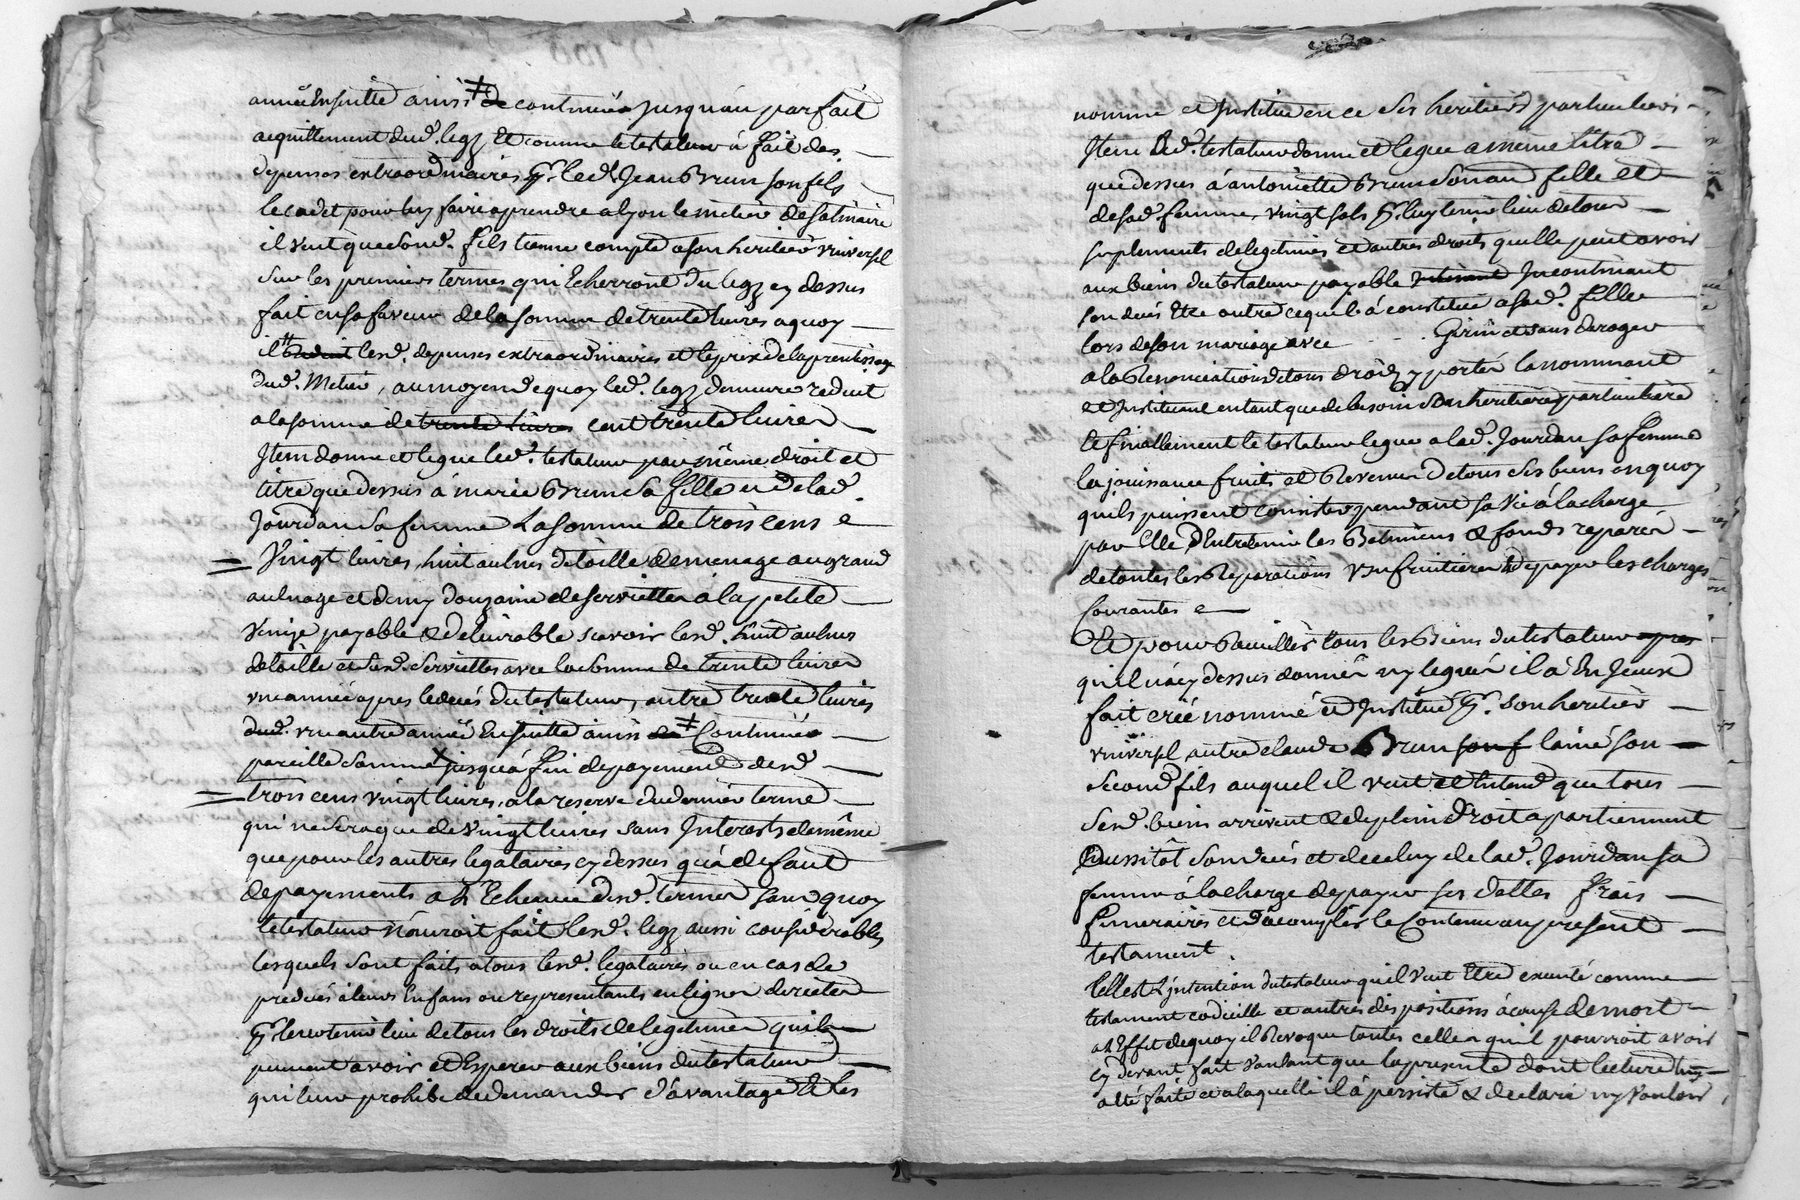 année Ensuitte ainsi ≠ de continuée jusquau parfait
acquittement dud. legz Et comme le testateur à fait des
depenses extraordinaires pr. led. Jean Brun son fils
le cadet pour luy faire aprendre a lyon le metier de satinaire
il veut que sond. fils tienne compte a son heritier vniversel
sur les premiers termes qui Echerront du legz cy dessus
fait en sa faveur de la somme de trente livres a quoy
il lesd. depenses extraordinaires et le prix de laprentissage
dud. Metier, au moyen de quoy led. legz demeure reduit
a la somme de trente livres cent trente livres
Item donne et legue led. testateur par même droit et
titre que dessus à marie Brun sa fille et de lad.
Jourdan sa femme La somme de trois cens
Vingt livres, huit aulnes de toille de menage au grand
aulnage et demy douzaine de serviettes à la petite
Venise payable & delivrable scavoir lesd. huit aulnes
de toille et lesd. serviettes avec la somme de trente livres
vne année apres le deces du testateur, autre trente livres
dud. vne autre année Ensuitte ainsi de ≠ Continuée
pareille somme x jusqua fin de payement desd.
trois cens vingt livres, a la reserve du dernier terme
qui ne sera que de vingt livres sans Interests de même
que pour les autres legataires cy dessus qu'a defaut
de payements a L'Echeance desd. termes sans quoy
le testateur n'auroit fait lesd. legz aussi considerables
lesquels sont faits a tous lesd. legataires ou en cas de
predeces à leurs Enfans ou representants en ligne directe
pr. leur tenir lieu de tous les droits de legitimes quils
peuvent avoir et Esperer aux biens du testateur
qui leur prohibe de demander d'avantage & les
nomme et Institue en ce ses heritiers particuliers
Item Led. testateur donne et legue a même titre
que dessus à antoinette Brun son autre fille et
de sad. femme, vingt sols pr. luy tenir lieu de tous
suplements de legitimes et autres droits quelle peut avoir
aux biens du testateur payable Incontinant
son deces Etre outre ce que le à constitué a sad. fille
lors de son mariage avec . . . Grin et sans deroger
a la Renonciation de tous droits y portée la nommant
et Instituant en tant que de besoin son heritiere particuliere
Et finallement le testateur legue a lad. Jourdan sa femme
la joüissance fruits et Revenus de tous ses biens en quoy
quils puissent consister pendant sa vie à la charge
par Elle d'Entretenir les Batimens & fonds reparés
de toutes les Reparations Vsufruitieres & de payer les charges
Courantes
Et pour Tous les Biens du testateur apres
qu'il n'a cy dessus donnés ny legués il à En Jceux
fait créé nommé et Institué pr. son heritier
vniversel autre claude Brun son f lainé son
second fils auquel il veut et Entend que tous
sesd. biens arrivent & de plein droit apartiennent
aussitôt son deces et de celuy de lad. Jourdan sa
femme à la charge de payer ses dettes frais
funeraires et d'acomplir le Contenu au present
testament.
telle est L'jntention du testateur quil veut Etre executé comme
testament codicille et autres dispositions à cause de mort
a L'Effet de quoy il Revoque toutes celles qu'il pourroit avoir
cy devant fait Voulant que la presente dont lecture luy
a été faite et a laquelle il à persisté & declaré ny Vouloir